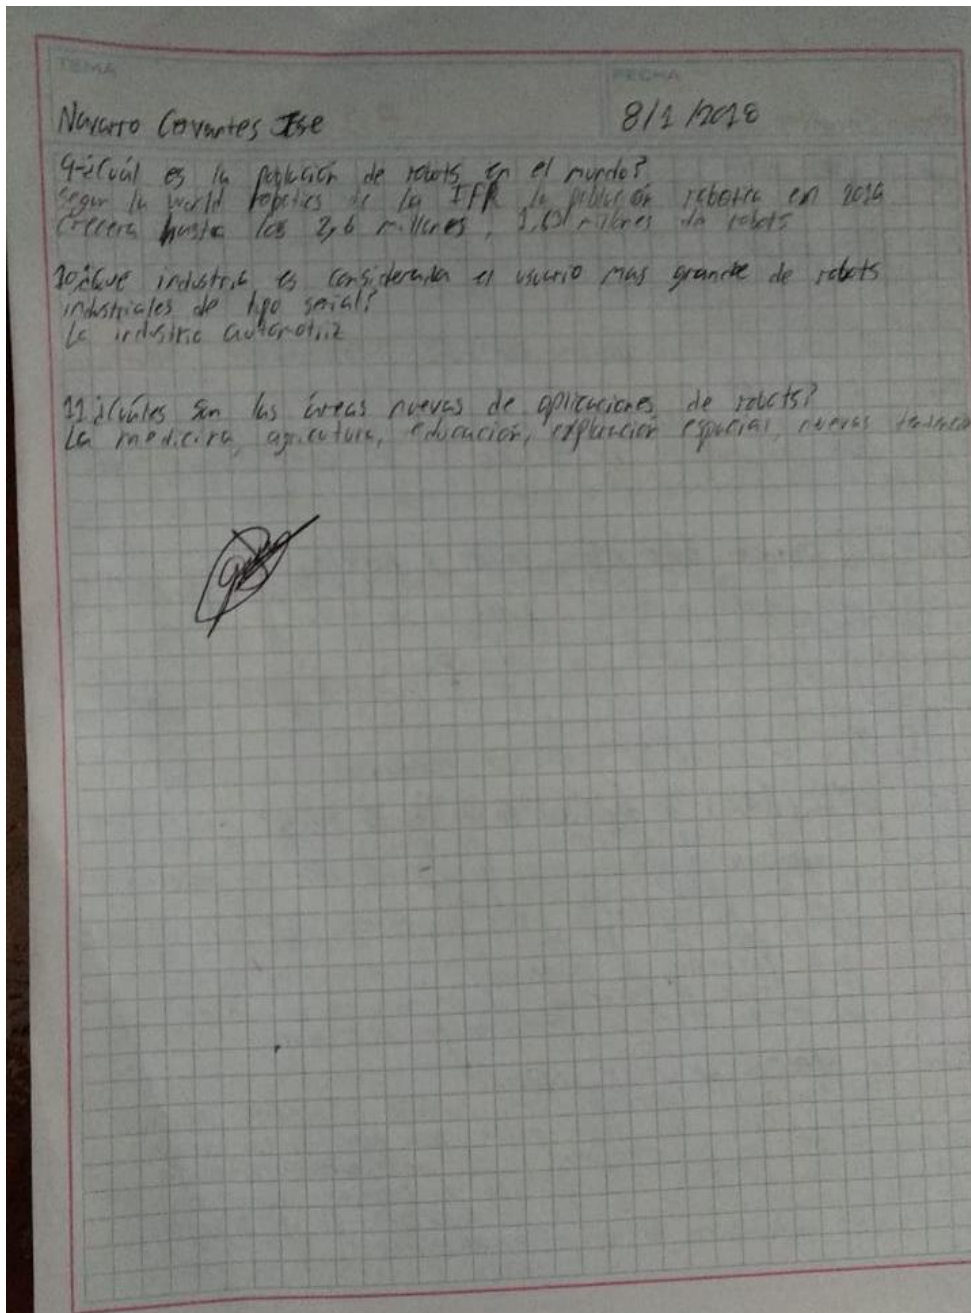 TEMA
FECHA
Navarro Cervantes Jse
8/1/2018
9-¿Cuál es la población de robots en el mundo?
Segun la world robotics de la IFR la población robotica en 2019
crecera hasta los 2,6 millones, millones de robots
10¿Que industria es considerada el usuario mas grande de robots
industriales de tipo serial?
La industria automotriz
11 ¿Cuáles son las áreas nuevas de aplicaciones de robots?
La medicina, agricutura, educación, exploración espacial, nuevas